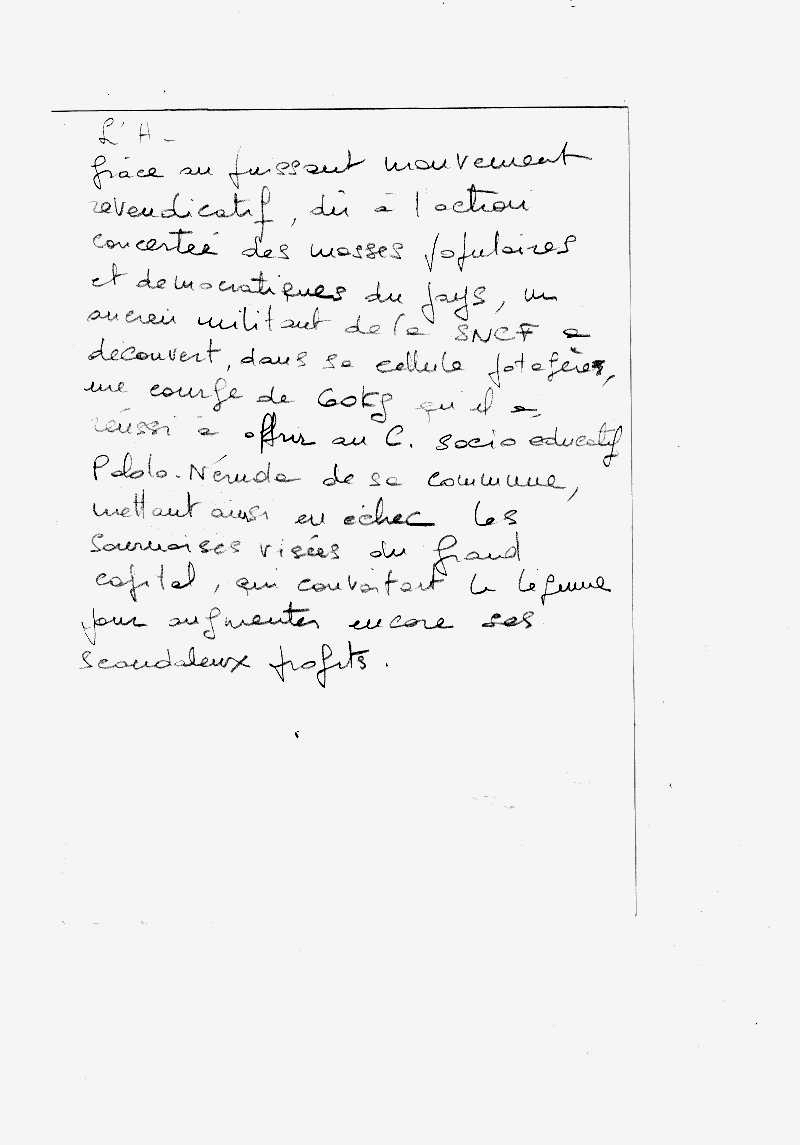 L'H -
Grâce au puissant mouvement
revendicatif, dû à l'action
concerteé des masses populaires
et democratiques du pays, un
ancien militant de la SNCF a
decouvert, dans sa cellule potagère,
une courge de 60kg qu'il a
réussi à offrir au C. socio educatif
Pablo. Néruda de sa commune,
mettant ainsi en échec les
Sournoises visées du grand
capital, qui convoitait le légume
pour augmenter encore ses
scandaleux profits.